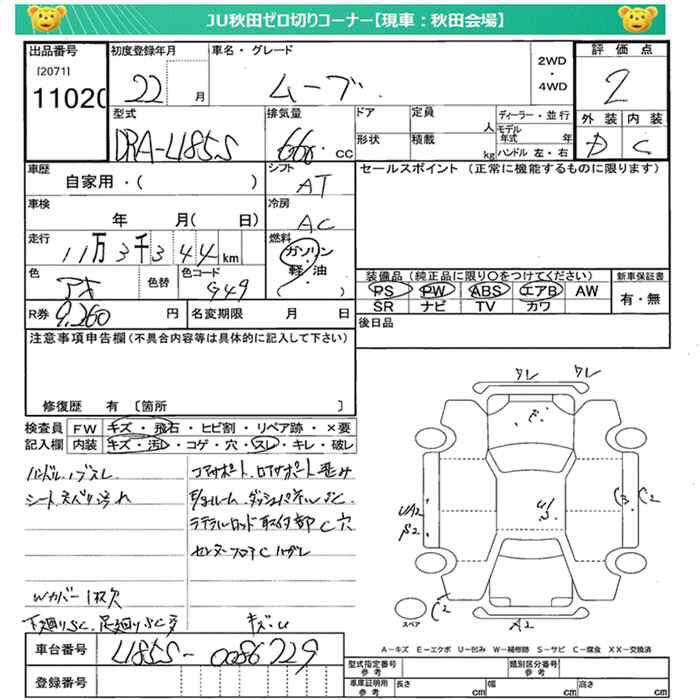 JU秋田ゼロ切りコーナー【現車：秋田会場】
出品番号 初度登録年月 車名・グレード 2WD ・ 4WD 評価点
[2071] 11020 22 月 ムーブ 2
型式 排気量 ドア 定員 人 ディーラー・並行 外装 内装
DBA-L185S 660 cc 形状 積載 kg モデル年式 年 ハンドル 左・右 D C
車歴 自家用・( ) シフト AT セールスポイント (正常に機能するものに限ります)
車検 年 月( 日) 冷房 AC
走行 11万3千344km 燃料 ガソリン・軽・油 ( )
色 色替 色コード G49 装備品 (純正品に限り○をつけてください) 新車保証書
PS PW ABS エアB AW 有・無
SR ナビ TV カワ
R券 9,260 円 名変期限 月 日 後日品
注意事項申告欄 (不具合内容等は具体的に記入して下さい)
修復歴 有 〔箇所 〕
検査員 FW キズ・飛石・ヒビ割・リペア跡・×要
記入欄 内装 キズ・汚レ・コゲ・穴・スレ・キレ・破レ
ハンドル.ノブスレ コアサポート.ロアサポート歪み
シートスベリ汚れ
ラテラルロッド取付部C穴
センターフロアCハガレ
Wカバー1枚欠
下廻りSC.足廻りSC多 キズ.U
ワレ ワレ
C3 C2
A2
スペア C2
A－キズ E－エクボ U－凹み W－補修跡 S－サビ C－腐食 XX－交換済
車台番号 L185S-0086729
登録番号
型式指定番号 参考 類別区分番号 参考
車庫証明用 参考 長さ cm 幅 cm 高さ cm